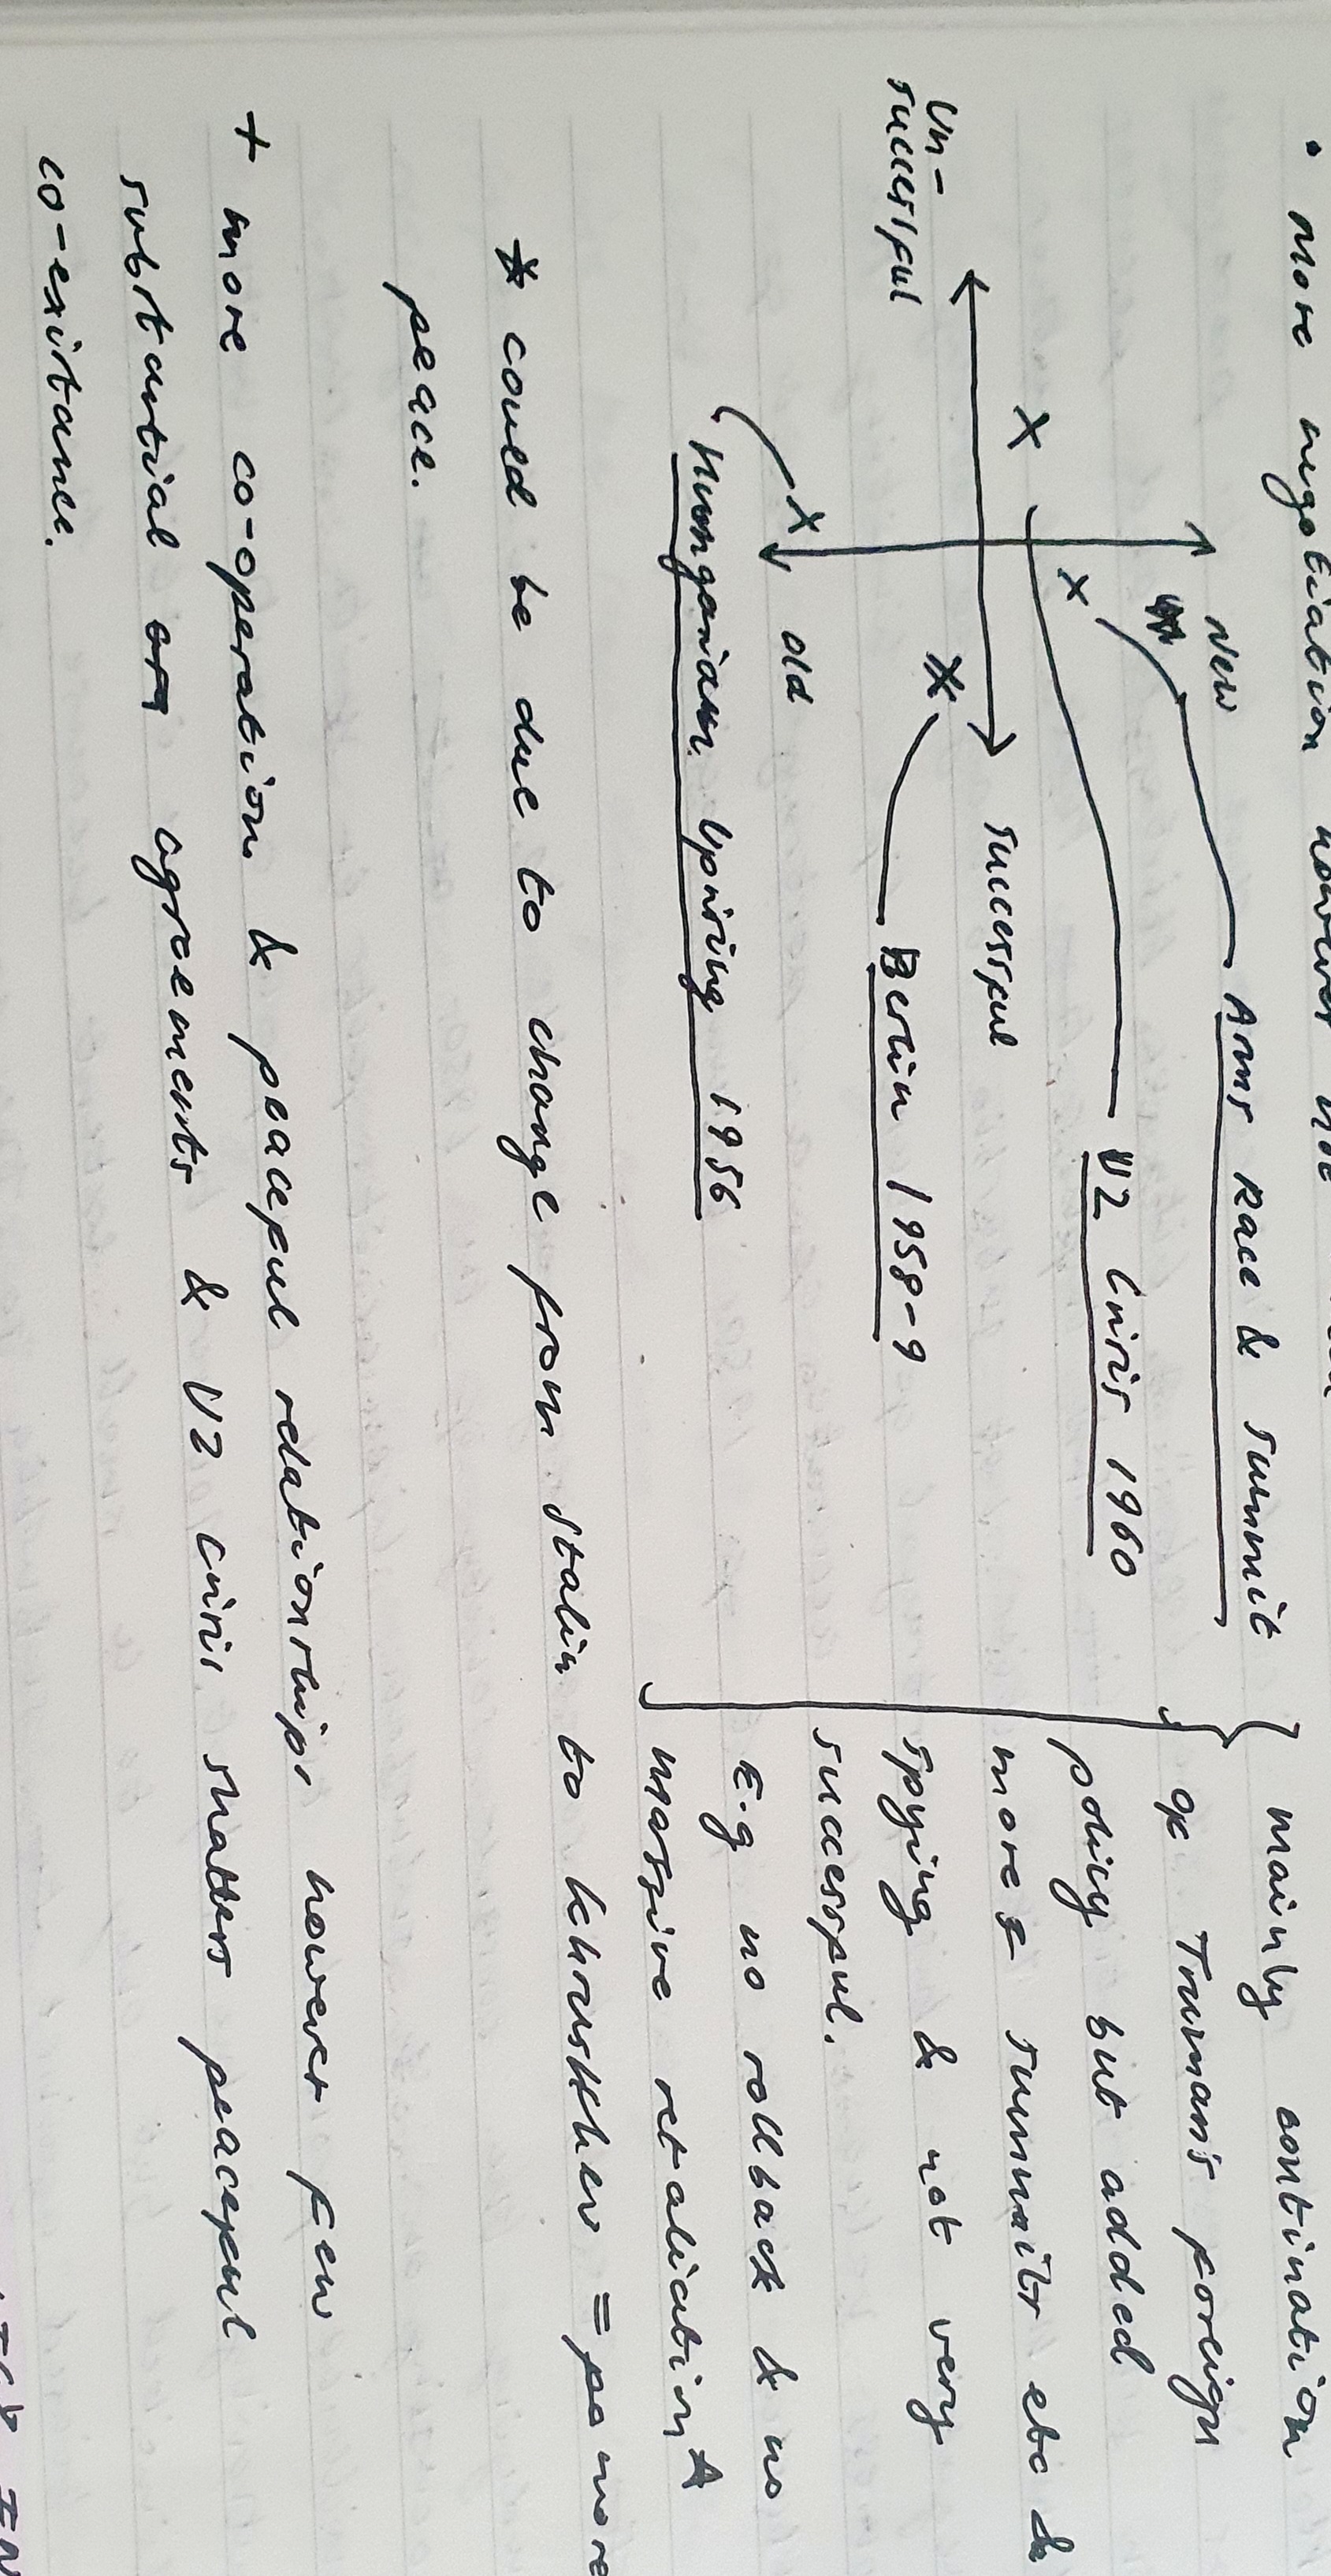 • more negotiation however not
New
Arms Race & Summit
U2 Crisis 1960
Un-
successful
successful
Berlin 1958-9
old
Hungarian Uprising 1956
mainly contination
of Truman's foreign
policy but added
more summits etc &
spying & not very
successful.
E.g no rollback & no
massive retaliation *
* could be due to change from Stalin to Khrushkhev = more
peace.
+ more co-operation & peaceful relationships however few
substantial agreements & U2 crisis shatters peaceful
co-existance.